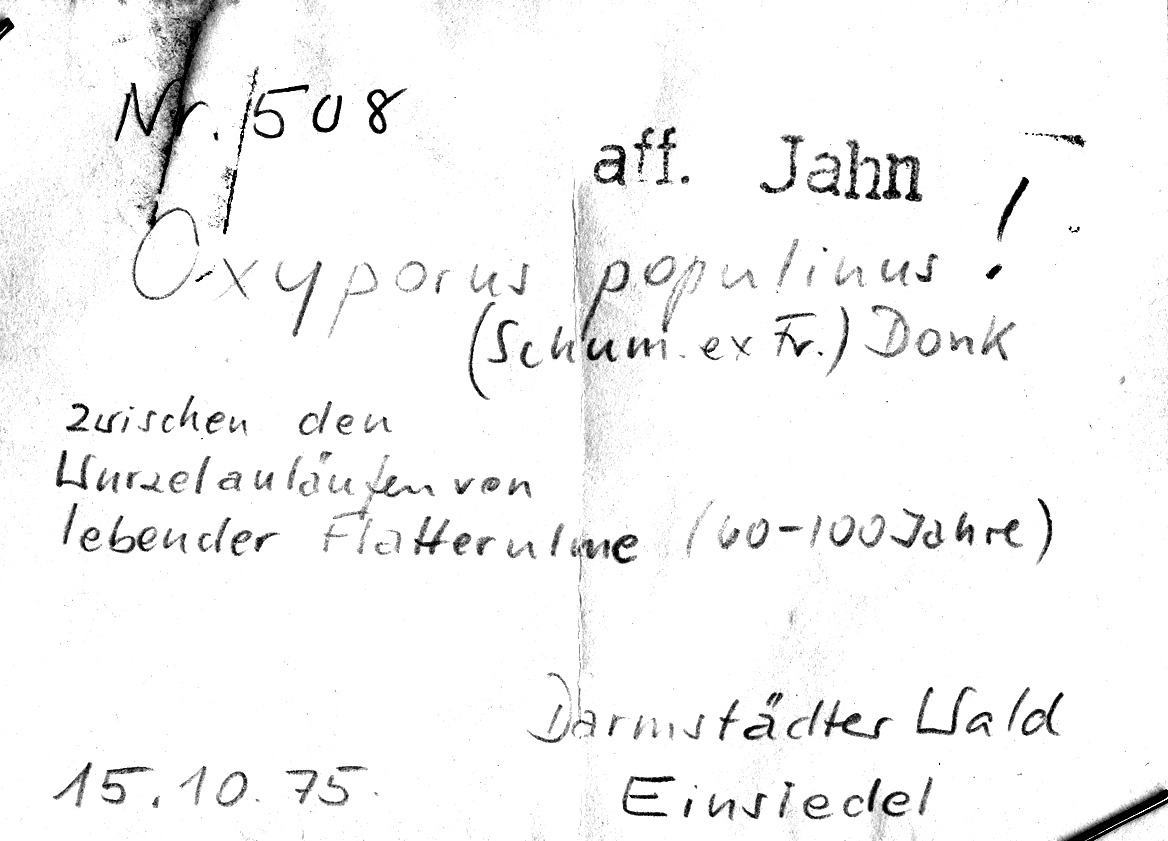 Nr. 508
aff. Jahn
Oxyporus populinus !
(Schum. ex Fr.) Donk
zwischen den
Wurzelanläufen von
lebender Flatterulme (60-100 Jahre)
Darmstädter Wald
15.10.75. Einsiedel